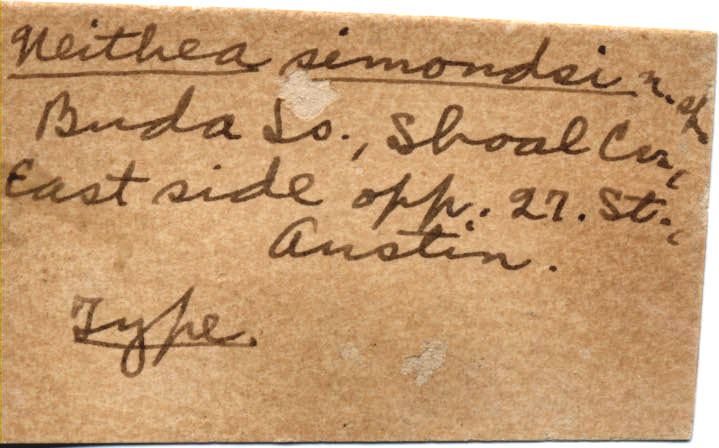 Neithea simondsi n. sp.
Buda Ls., Shoal Cr.,
East side opp. 27. St.,
Austin.
Type.